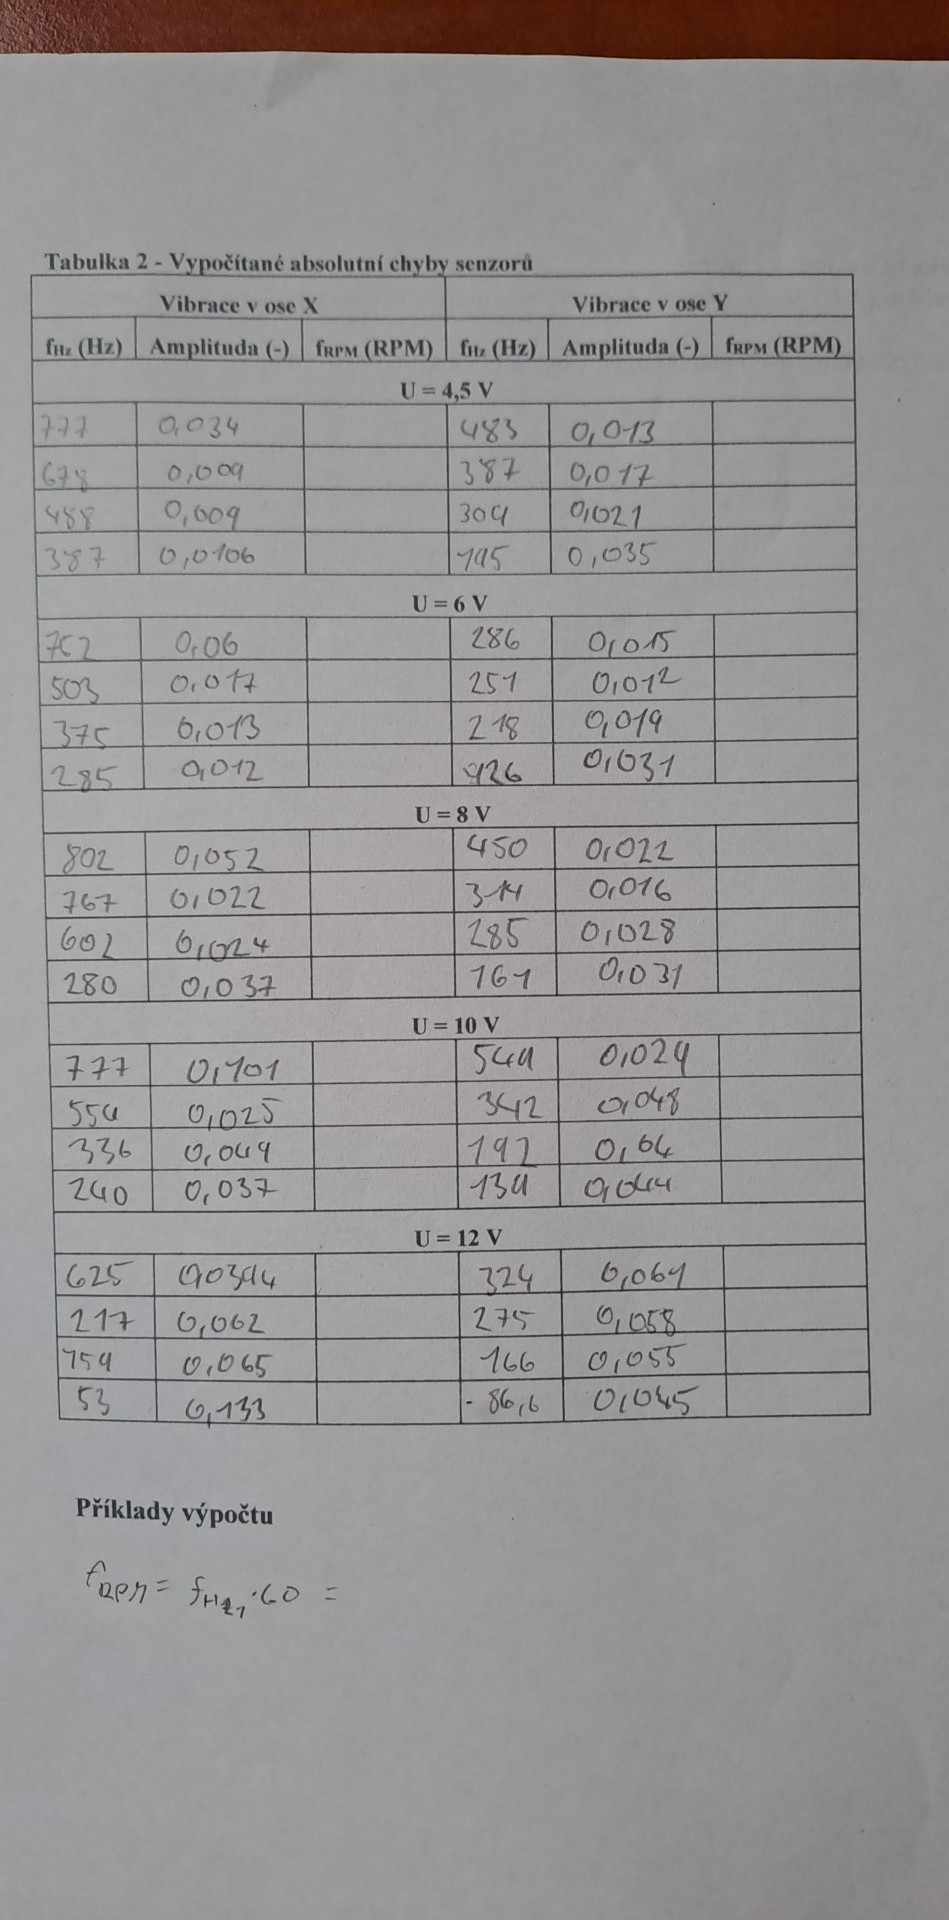 Tabulka 2 - Vypočítané absolutní chyby senzorů
Vibrace v ose X Vibrace v ose Y
fHz (Hz) Amplituda (-) fRPM (RPM) fHz (Hz) Amplituda (-) fRPM (RPM)
U = 4,5 V
777 0,034 483 0,013
678 0,009 387 0,017
488 0,009 304 0,021
387 0,0106 195 0,035
U = 6 V
752 0,06 286 0,015
503 0,017 251 0,012
375 0,013 218 0,019
285 0,012 126 0,031
U = 8 V
802 0,052 450 0,022
767 0,022 314 0,016
602 0,024 285 0,028
280 0,037 161 0,031
U = 10 V
777 0,101 544 0,024
554 0,025 342 0,048
336 0,049 192 0,04
240 0,037 134 0,044
U = 12 V
625 324 0,061
217 0,062 275 0,058
154 0,065 166 0,055
53 0,133 86,6 0,045
Příklady výpočtu
fRPM = fHz1 · 60 =